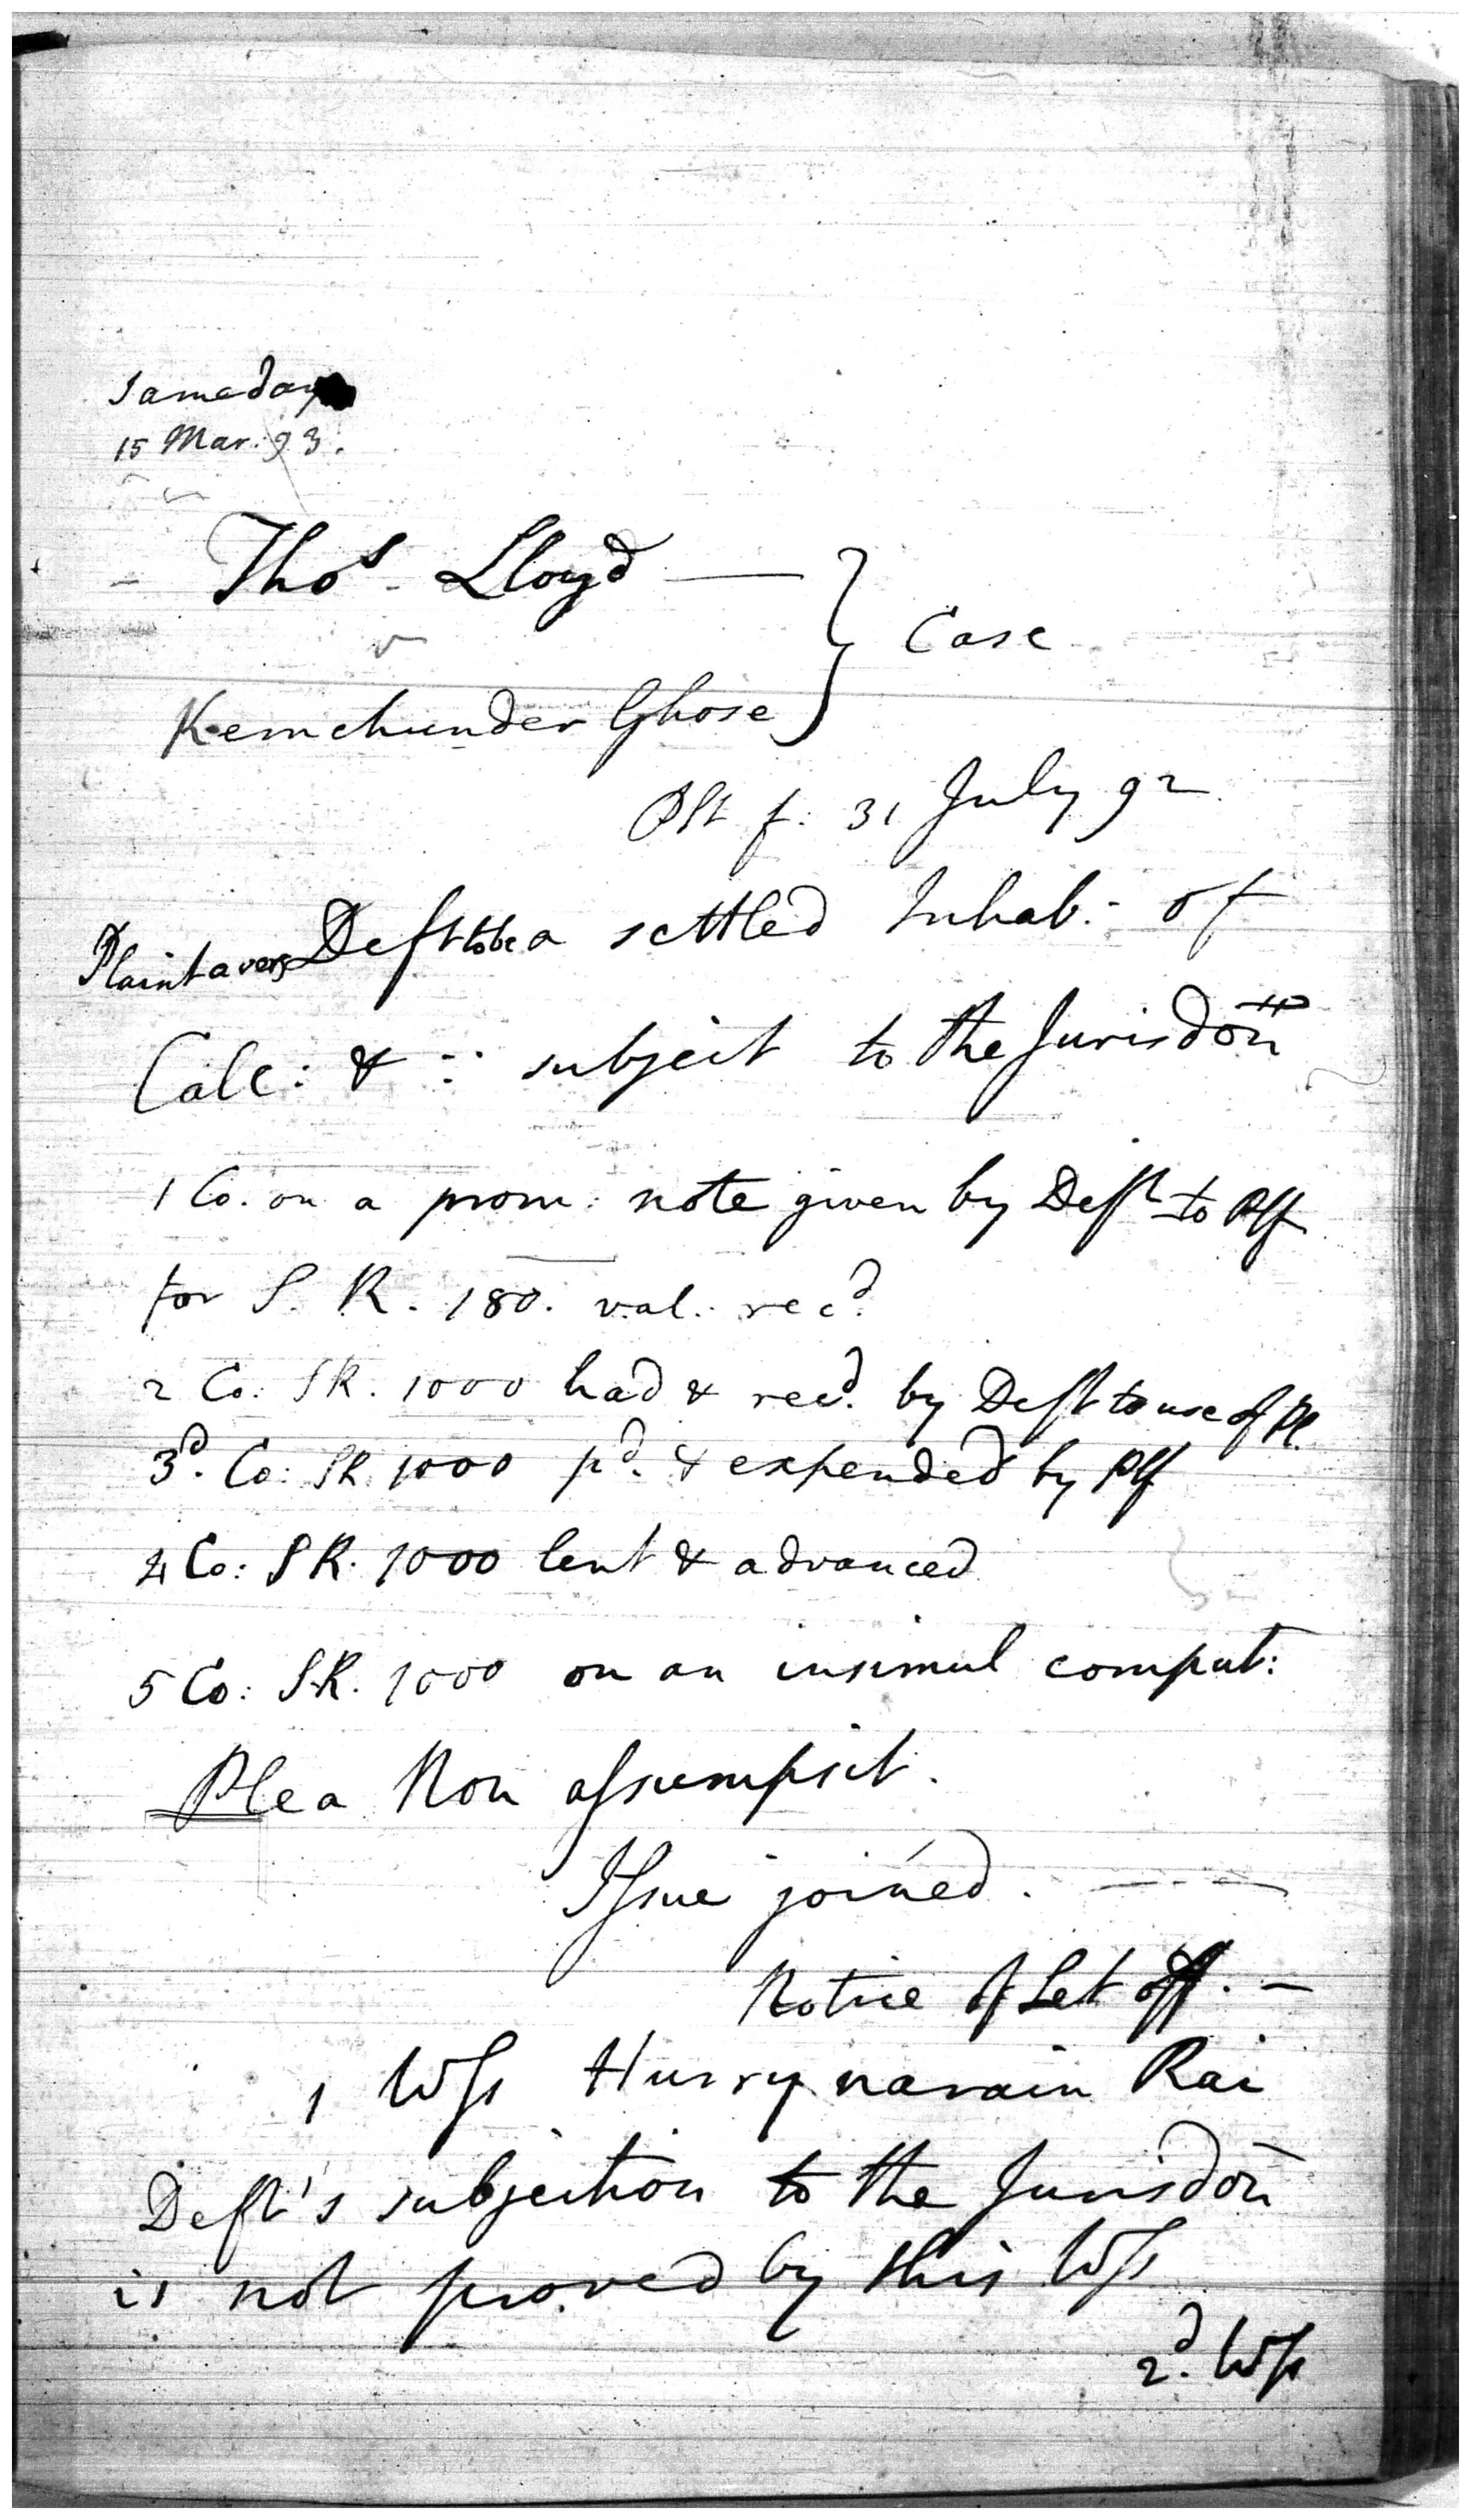 Same day
15 Mar: 93.
Thos Lloyd
v
Kemchunder Ghose
} Case
Plt f: 31 July 92
Plaint avers Deft to be a settled Inhab: of
Calc: & ∵ subject to the Jurisdon
1 Co. on a prom: note given by Deft to Plf
for S. R. 180. val. recd.
2 Co: SR. 1000 had & recd. by Deft to use of Pl.
3d. Co: SR 1000 pd. & expended by Plf
4 Co: SR. 1000 lent & advanced
5 Co: S.R. 1000 on an insimul comput:
Plea Non assumpsit.
Issue joined.
Notice of Set off. —
1 Wss Hurrynarain Rai
Deft's subjection to the Jurisdon
is not proved by this Wss
2d. Wss